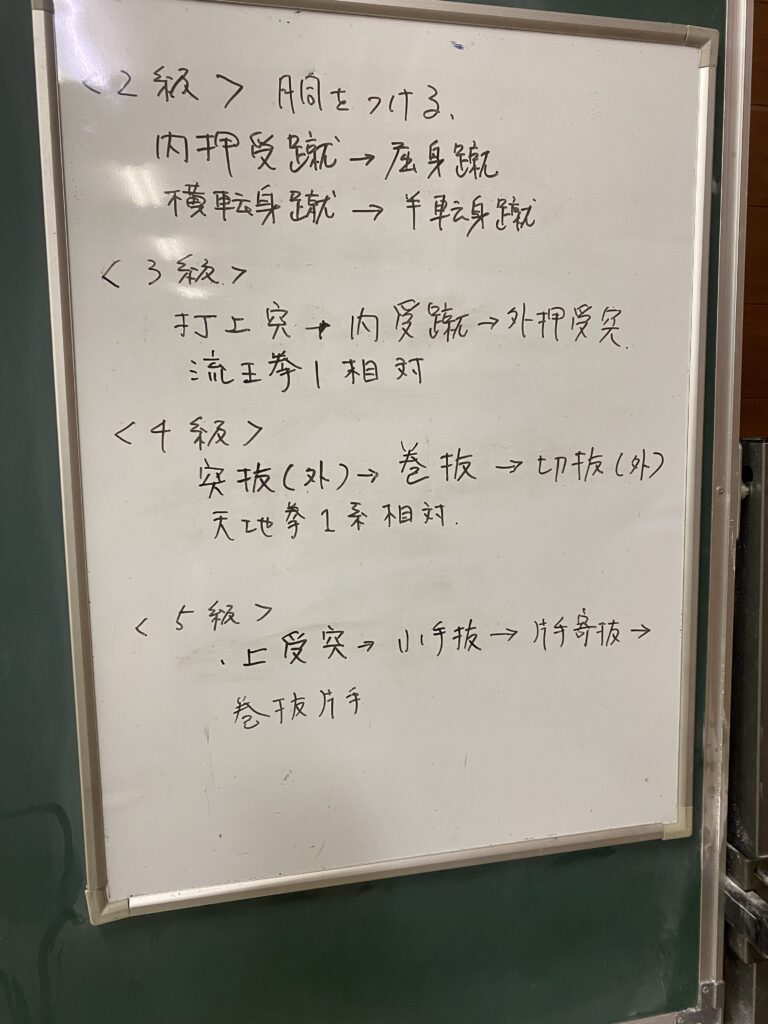 <2級> 胴をつける、
内押受蹴→屈身蹴
横転身蹴→半転身蹴
<3級>
打上突→内受蹴→外押受突
流王拳1相対
<4級>
突抜(外)→巻抜→切抜(外)
天地拳1系相対.
<5級>
.上受突→小手抜→片手寄抜→
巻抜片手